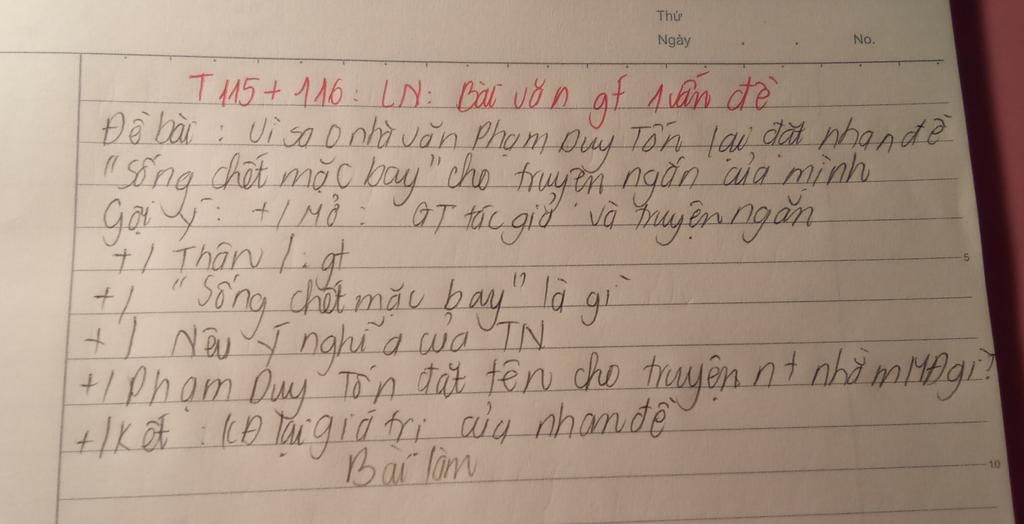 Thứ
Ngày . . No.
T 115 + 116 : LN : Bài văn gt 1 vấn đề
Đề bài : Vì sao nhà văn Phạm Duy Tốn lại đặt nhan đề
"Sống chết mặc bay" cho truyện ngắn của mình
Gợi ý : +/ Mở : GT tác giả và truyện ngắn
+/ Thân /: gt
+/ "Sống chết mặc bay" là gì
+/ Nêu ý nghĩa của TN
+/ Phạm Duy Tốn đặt tên cho truyện nt nhằm MĐ gì?
+/ Kết : KĐ lại giá trị của nhan đề
Bài làm
5
10